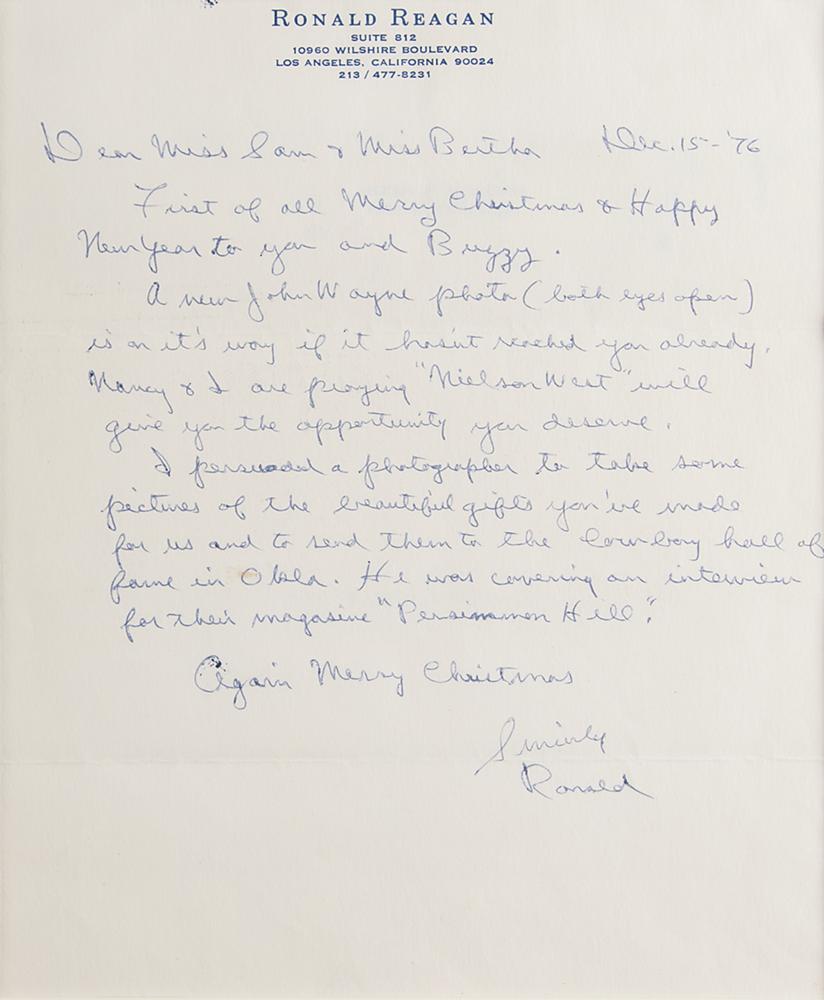 RONALD REAGAN
SUITE 812
10960 WILSHIRE BOULEVARD
LOS ANGELES, CALIFORNIA 90024
213 / 477-8231
Dear Miss Sam & Miss Bertha Dec. 15-'76
First of all Merry Christmas & Happy
New Year to you and Buzzy.
A new John Wayne photo (both eyes open)
is on it's way if it hasn't reached you already.
Nancy & I are praying "Nielson West" will
give you the opportunity you deserve.
I persuaded a photographer to take some
pictures of the beautiful gifts you've made
for us and to send them to the Cowboy hall of
fame in Okla. He was covering an interview
for their magazine "Persimmon Hill".
Again Merry Christmas
Sincerely
Ronald